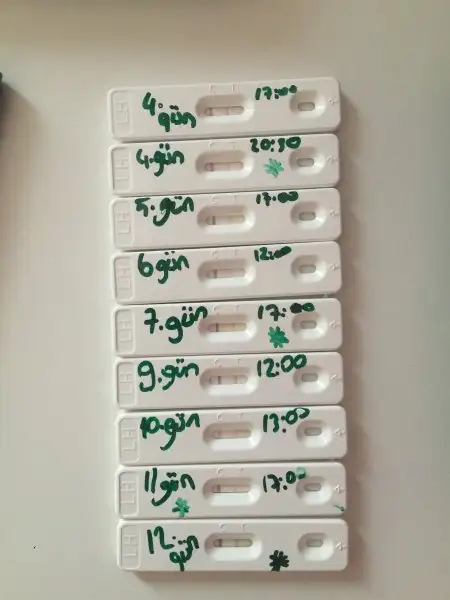 LH 4. gün C T 17:00
LH 4.gün 20:30
LH 5.gün 17:00
LH 6 gün 12:00
LH 7.gün 17:00
LH 9.gün 12:00
LH 10.gün 13:00
LH 11 gün 17:00
LH 12. gün